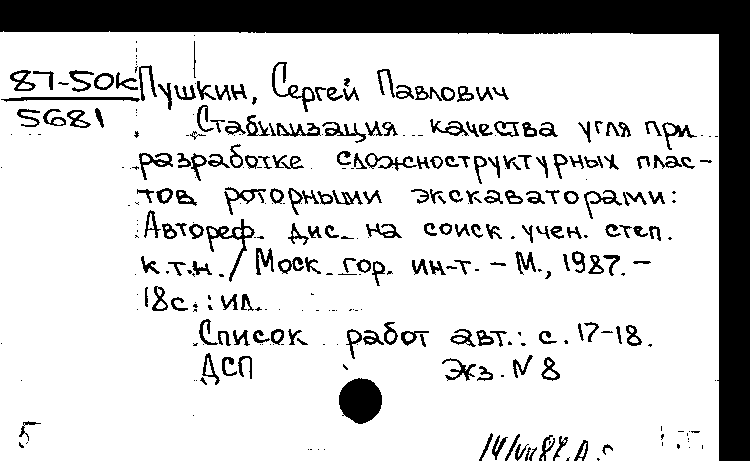 87-50к Пушкин, Сергей Павлович
5681 Стабилизация качества угля при
разработке сложноструктурных плас-
тов роторными экскаваторами:
Автореф. дис. на соиск. учен. степ.
к.т.н. / Моск. гор. ин-т. - М., 1987. -
18с.: ил.
Список работ авт.: с. 17-18.
ДСП Экз. № 8
5